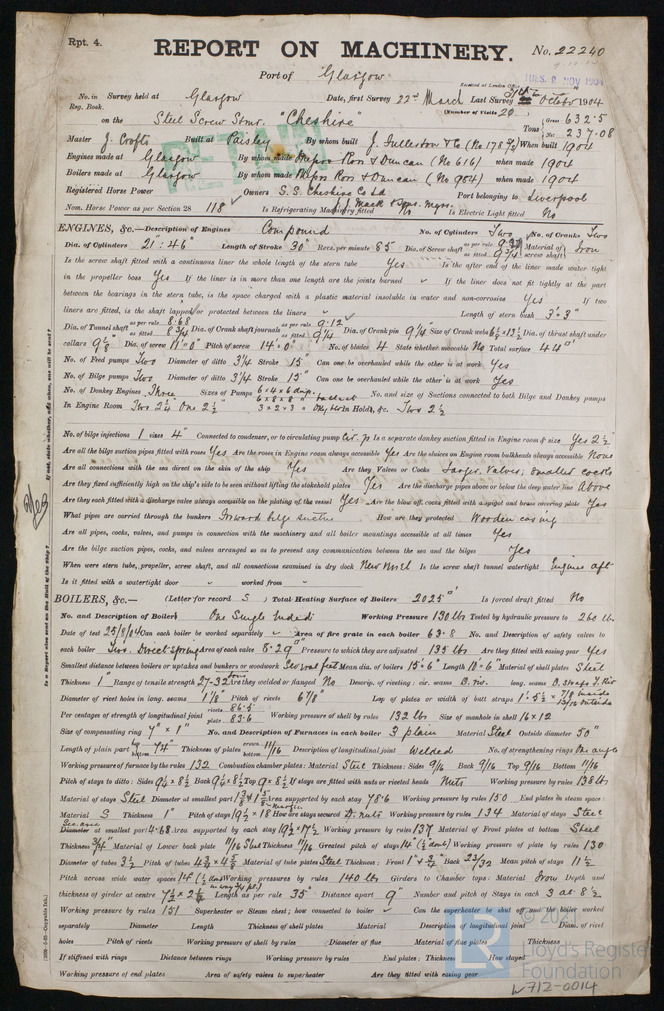 Rpt. 4.
REPORT ON MACHINERY.
No. 22240
Port of Glasgow
Received at London Office
TUES. 8 NOV 1904
No. in Survey held at Glasgow Date, first Survey 22nd March Last Survey October 1904
Reg. Book.
(Number of Visits 20)
on the Steel Screw Stmr. "Cheshire"
Tons Gross 632.5
Net 237.08
Master J. Crofts Built at Paisley By whom built J. Fullerton & Co (No 178) When built 1904
Engines made at Glasgow By whom made Messrs Ross & Duncan (No 616) when made 1904
Boilers made at Glasgow By whom made Messrs Ross & Duncan (No 984) when made 1904
Registered Horse Power Owners S.S. Cheshire Co Ld Port belonging to Liverpool
J. J. Mack & Sons. Mgrs.
Nom. Horse Power as per Section 28 118 Is Refrigerating Machinery fitted No Is Electric Light fitted No
ENGINES, &c.—Description of Engines Compound No. of Cylinders Two No. of Cranks Two
Dia. of Cylinders 21" : 46" Length of Stroke 30" Revs. per minute 85 Dia. of Screw shaft as per rule as fitted 9 3/4 Material of screw shaft Iron
Is the screw shaft fitted with a continuous liner the whole length of the stern tube Yes Is the after end of the liner made water tight
in the propeller boss Yes If the liner is in more than one length are the joints burned If the liner does not fit tightly at the part
between the bearings in the stern tube, is the space charged with a plastic material insoluble in water and non-corrosive Yes If two
liners are fitted, is the shaft lapped or protected between the liners Length of stern bush 3' 3"
Dia. of Tunnel shaft as per rule 8.68 as fitted 8 3/4 Dia. of Crank shaft journals as per rule 9.12 as fitted 9 1/4 Dia. of Crank pin 9 1/4 Size of Crank webs 6 1/2 x 13 1/2 Dia. of thrust shaft under
collars 9 1/8 Dia. of screw 11' 0" Pitch of screw 14' 0" No. of blades 4 State whether moveable No Total surface 44 □'
No. of Feed pumps Two Diameter of ditto 3 1/4 Stroke 15" Can one be overhauled while the other is at work Yes
No. of Bilge pumps Two Diameter of ditto 3 1/4 Stroke 15" Can one be overhauled while the other is at work Yes
No. of Donkey Engines Three Sizes of Pumps 6 x 4 x 6 6 x 8 x 8 ballast 3 x 2 x 3 No. and size of Suctions connected to both Bilge and Donkey pumps
In Engine Room Two 2 1/4 One 2 1/2 In Holds, &c. Two 2 1/2
No. of bilge injections 1 sizes 4" Connected to condenser, or to circulating pump Cir. p Is a separate donkey suction fitted in Engine room & size Yes 2 1/2
Are all the bilge suction pipes fitted with roses Yes Are the roses in Engine room always accessible Yes Are the sluices on Engine room bulkheads always accessible None
Are all connections with the sea direct on the skin of the ship Yes Are they Valves or Cocks Larger Valves; Smaller cocks
Are they fixed sufficiently high on the ship's side to be seen without lifting the stokehold plates Yes Are the discharge pipes above or below the deep water line Above
Are they each fitted with a discharge valve always accessible on the plating of the vessel Yes Are the blow off cocks fitted with a spigot and brass covering plate Yes
What pipes are carried through the bunkers Forward bilge suction How are they protected Wooden casing
Are all pipes, cocks, valves, and pumps in connection with the machinery and all boiler mountings accessible at all times Yes
Are the bilge suction pipes, cocks, and valves arranged so as to prevent any communication between the sea and the bilges Yes
When were stern tube, propeller, screw shaft, and all connections examined in dry dock New Vessel Is the screw shaft tunnel watertight Engines aft
Is it fitted with a watertight door worked from
BOILERS, &c.— (Letter for record S) Total Heating Surface of Boilers 2025 □' Is forced draft fitted No
No. and Description of Boilers One Single Ended Working Pressure 130 lbs Tested by hydraulic pressure to 260 lbs
Date of test 25/8/04 Can each boiler be worked separately Area of fire grate in each boiler 63.8 No. and Description of safety valves to
each boiler Two. Direct spring Area of each valve 8.29 □" Pressure to which they are adjusted 135 lbs Are they fitted with easing gear Yes
Smallest distance between boilers or uptakes and bunkers or woodwork Several feet Mean dia. of boilers 15' 6" Length 10' 6" Material of shell plates Steel
Thickness 1" Range of tensile strength 27-32 tons Are they welded or flanged No Descrip. of riveting: cir. seams D. riv. long. seams B. straps T. riv
Diameter of rivet holes in long. seams 1 1/8" Pitch of rivets 6 7/8" Lap of plates or width of butt straps 1' 5 1/2" x 7/8 inside 13/16 outside
Per centages of strength of longitudinal joint rivets 86.5 plate 83.6 Working pressure of shell by rules 132 lbs Size of manhole in shell 16 x 12
Size of compensating ring 7" x 1" No. and Description of Furnaces in each boiler 3 plain Material Steel Outside diameter 50"
Length of plain part top bottom 74" Thickness of plates crown bottom 11/16 Description of longitudinal joint Welded No. of strengthening rings One angle
Working pressure of furnace by the rules 132 Combustion chamber plates: Material Steel Thickness: Sides 9/16 Back 9/16 Top 9/16 Bottom 11/16
Pitch of stays to ditto: Sides 9 1/4 x 8 1/2 Back 9 1/4 x 8 1/2 Top 9 x 8 1/2 If stays are fitted with nuts or riveted heads Nuts Working pressure by rules 138 lbs
Material of stays Steel Diameter at smallest part Area supported by each stay 78.6 Working pressure by rules 150 End plates in steam space:
Material S Thickness 1" Pitch of stays 19 1/2 x 18 How are stays secured D. nuts Working pressure by rules 134 Material of stays Steel
Diameter at smallest part 4.68 Area supported by each stay 19 1/2 x 17 1/2 Working pressure by rules 137 Material of Front plates at bottom Steel
Thickness 3/4" Material of Lower back plate Steel Thickness 11/16 Greatest pitch of stays 14" Working pressure of plate by rules 130
Diameter of tubes 3 1/2 Pitch of tubes 4 3/4 x 4 5/8 Material of tube plates Steel Thickness: Front Back 23/32 Mean pitch of stays 11 1/2
Pitch across wide water spaces 14 Working pressures by rules 140 lbs Girders to Chamber tops: Material Iron Depth and
thickness of girder at centre 7 1/2 x 2 Length as per rule 35" Distance apart 9" Number and pitch of Stays in each 3 at 8 1/2
Working pressure by rules 151 Superheater or Steam chest; how connected to boiler Can the superheater be shut off and the boiler worked
separately Diameter Length Thickness of shell plates Material Description of longitudinal joint Diam. of rivet
holes Pitch of rivets Working pressure of shell by rules Diameter of flue Material of flue plates Thickness
If stiffened with rings Distance between rings Working pressure by rules End plates: Thickness How stayed
Working pressure of end plates Area of safety valves to superheater Are they fitted with easing gear
Yes
Is a Report also sent on the Hull of the Ship?
If not, state whether, and when, one will be sent?
RETAIN
© 2021
Lloyd's Register
Foundation
W712-0014